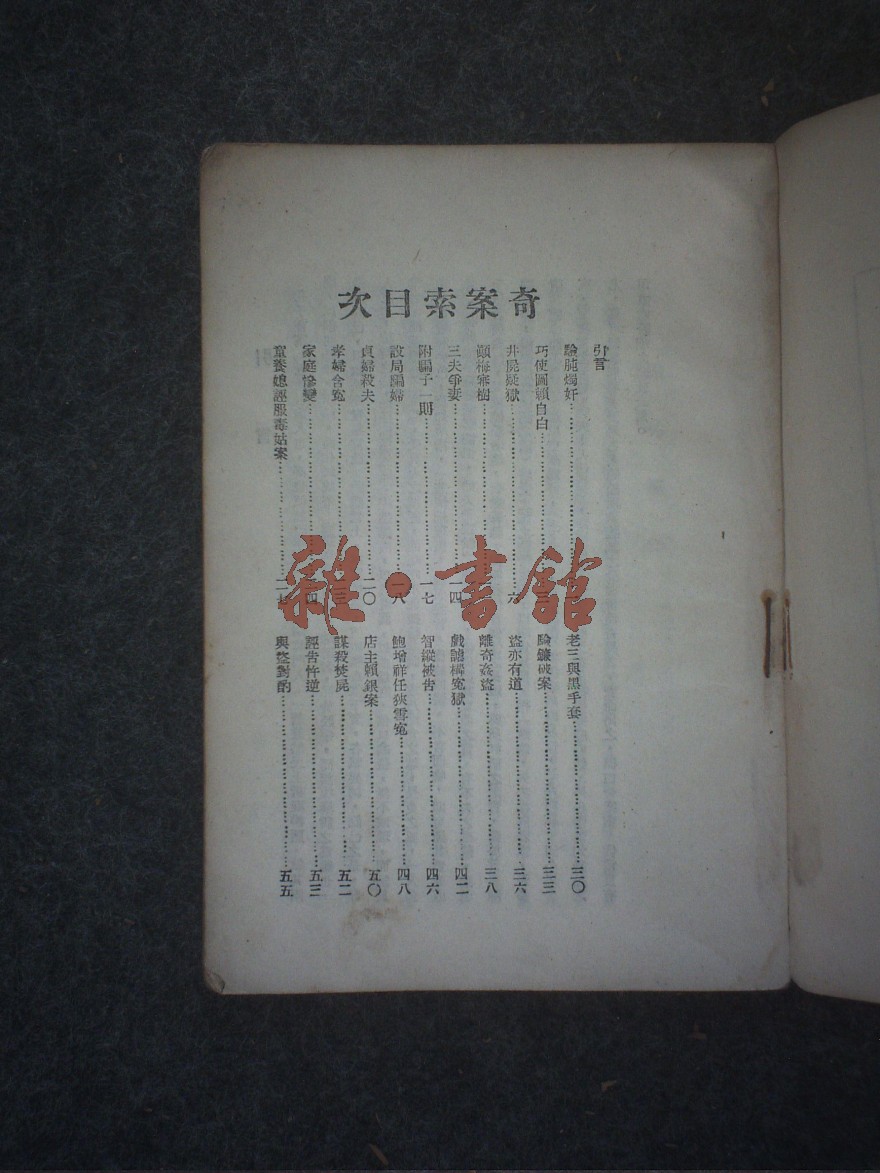 奇案索目次
引言
驗肫燭奸
巧使圖賴自白
井屍疑獄 六
顛梅寒樹
三夫爭妻 一四
附騙子一則 一七
設局騙婦 一八
貞婦殺夫 二〇
孝婦含冤
家庭慘變
童養媳誣服毒姑案
老三與黑手套 三〇
驗鐮破案 三三
盜亦有道 三六
離奇姦盜 三八
戲謔構冤獄 四二
智縱被告 四六
鮑增祥任狹雪寃 四八
店主賴銀案 五〇
謀殺焚屍 五二
誣告忤逆 五三
與盜對酌 五五
雜·書館